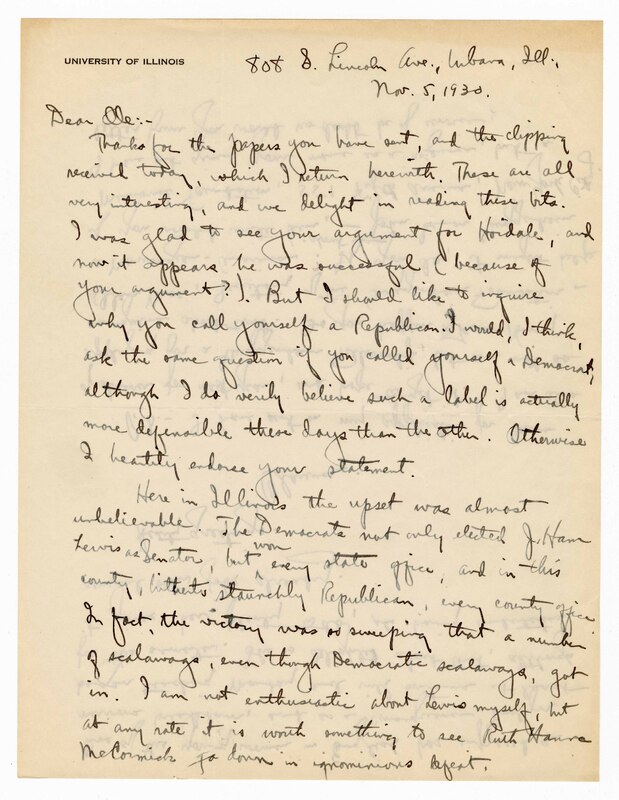 UNIVERSITY OF ILLINOIS
808 S. Lincoln Ave., Urbana, Ill.,
Nov. 5, 1930.
Dear Ole:-
Thanks for the papers you have sent, and the clipping
received today, which I return herewith. These are all
very interesting, and we delight in reading these bits.
I was glad to see your argument for Hoidale, and
now it appears he was successful (because of
your argument?). But I should like to inquire
why you call yourself a Republican. I would, I think,
ask the same question if you called yourself a Democrat,
although I do verily believe such a label is actually
more defensible these days than the other. Otherwise
I heartily endorse your statement.
Here in Illinois the upset was almost
unbelievable. The Democrats not only elected J. Ham
Lewis as Senator, but won every state office, and in this
county, hitherto staunchly Republican, every county office.
In fact, the victory was so sweeping that a number
of scalawags, even though Democratic scalawags, got
in. I am not enthusiastic about Lewis myself, but
at any rate it is worth something to see Ruth Hanna
McCormick go down in ignominious defeat.